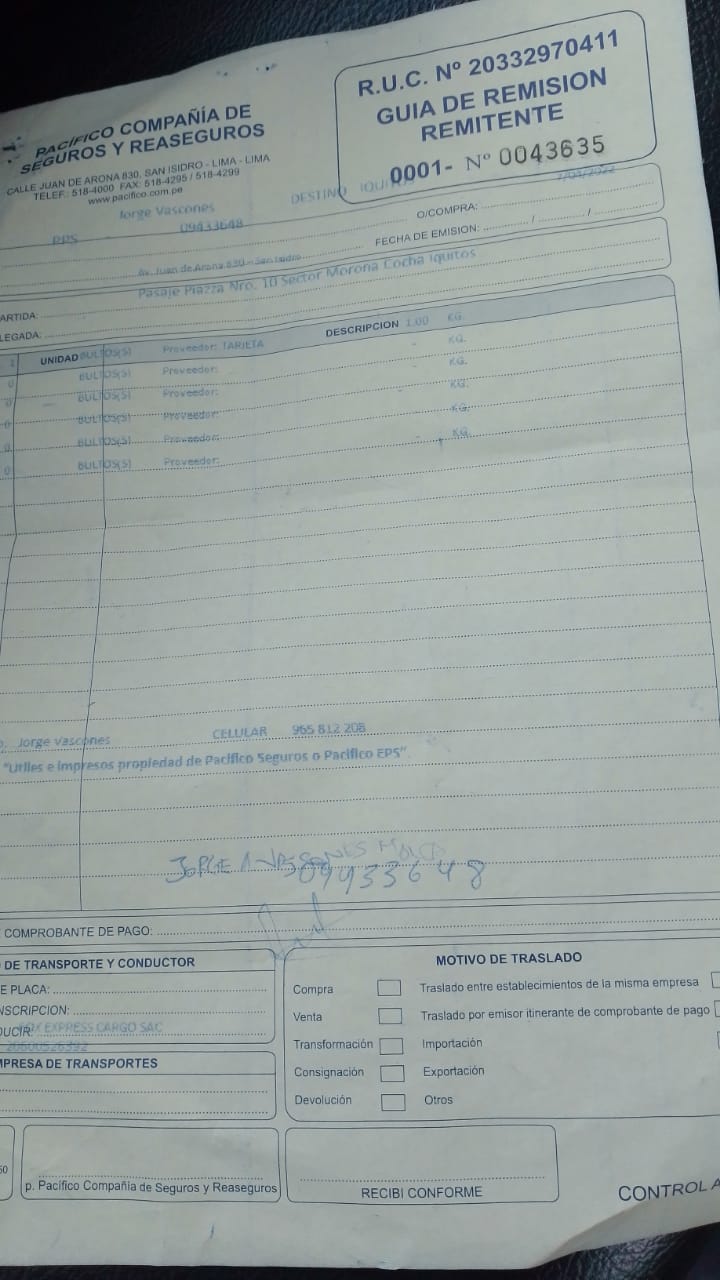 PACÍFICO COMPAÑÍA DE
SEGUROS Y REASEGUROS
CALLE JUAN DE ARONA 830, SAN ISIDRO - LIMA - LIMA
TELEF.: 518-4000 FAX: 518-4295 / 518-4299
www.pacifico.com.pe
R.U.C. Nº 20332970411
GUIA DE REMISION
REMITENTE
0001- Nº 0043635
Jorge Vascones
DESTINO IQUITOS
PPS 09433648
O/COMPRA:
FECHA DE EMISION: / /
Av. Juan de Arona 830 - San Isidro
Pasaje Piazza Nro. 10 Sector Morona Cocha Iquitos
ARTIDA:
LEGADA:
UNIDAD DESCRIPCION
BULTOS(S) Proveedor: TARJETA 1.00 KG.
0 BULTOS(S) Proveedor: - KG.
0 BULTOS(S) Proveedor: - KG.
0 BULTOS(S) Proveedor: - KG.
0 BULTOS(S) Proveedor: - KG.
0 BULTOS(S) Proveedor: - KG.
Jorge Vascones CELULAR 965 812 208
"Utiles e impresos propiedad de Pacifico Seguros o Pacifico EPS".
JORGE A VASCONES
09433648
COMPROBANTE DE PAGO:
DE TRANSPORTE Y CONDUCTOR
E PLACA:
NSCRIPCION:
DUCIR:
EXPRESS CARGO SAC
MPRESA DE TRANSPORTES
MOTIVO DE TRASLADO
Compra
Traslado entre establecimientos de la misma empresa
Venta
Traslado por emisor itinerante de comprobante de pago
Transformación
Importación
Consignación
Exportación
Devolución
Otros
p. Pacífico Compañia de Seguros y Reaseguros
RECIBI CONFORME
CONTROL A